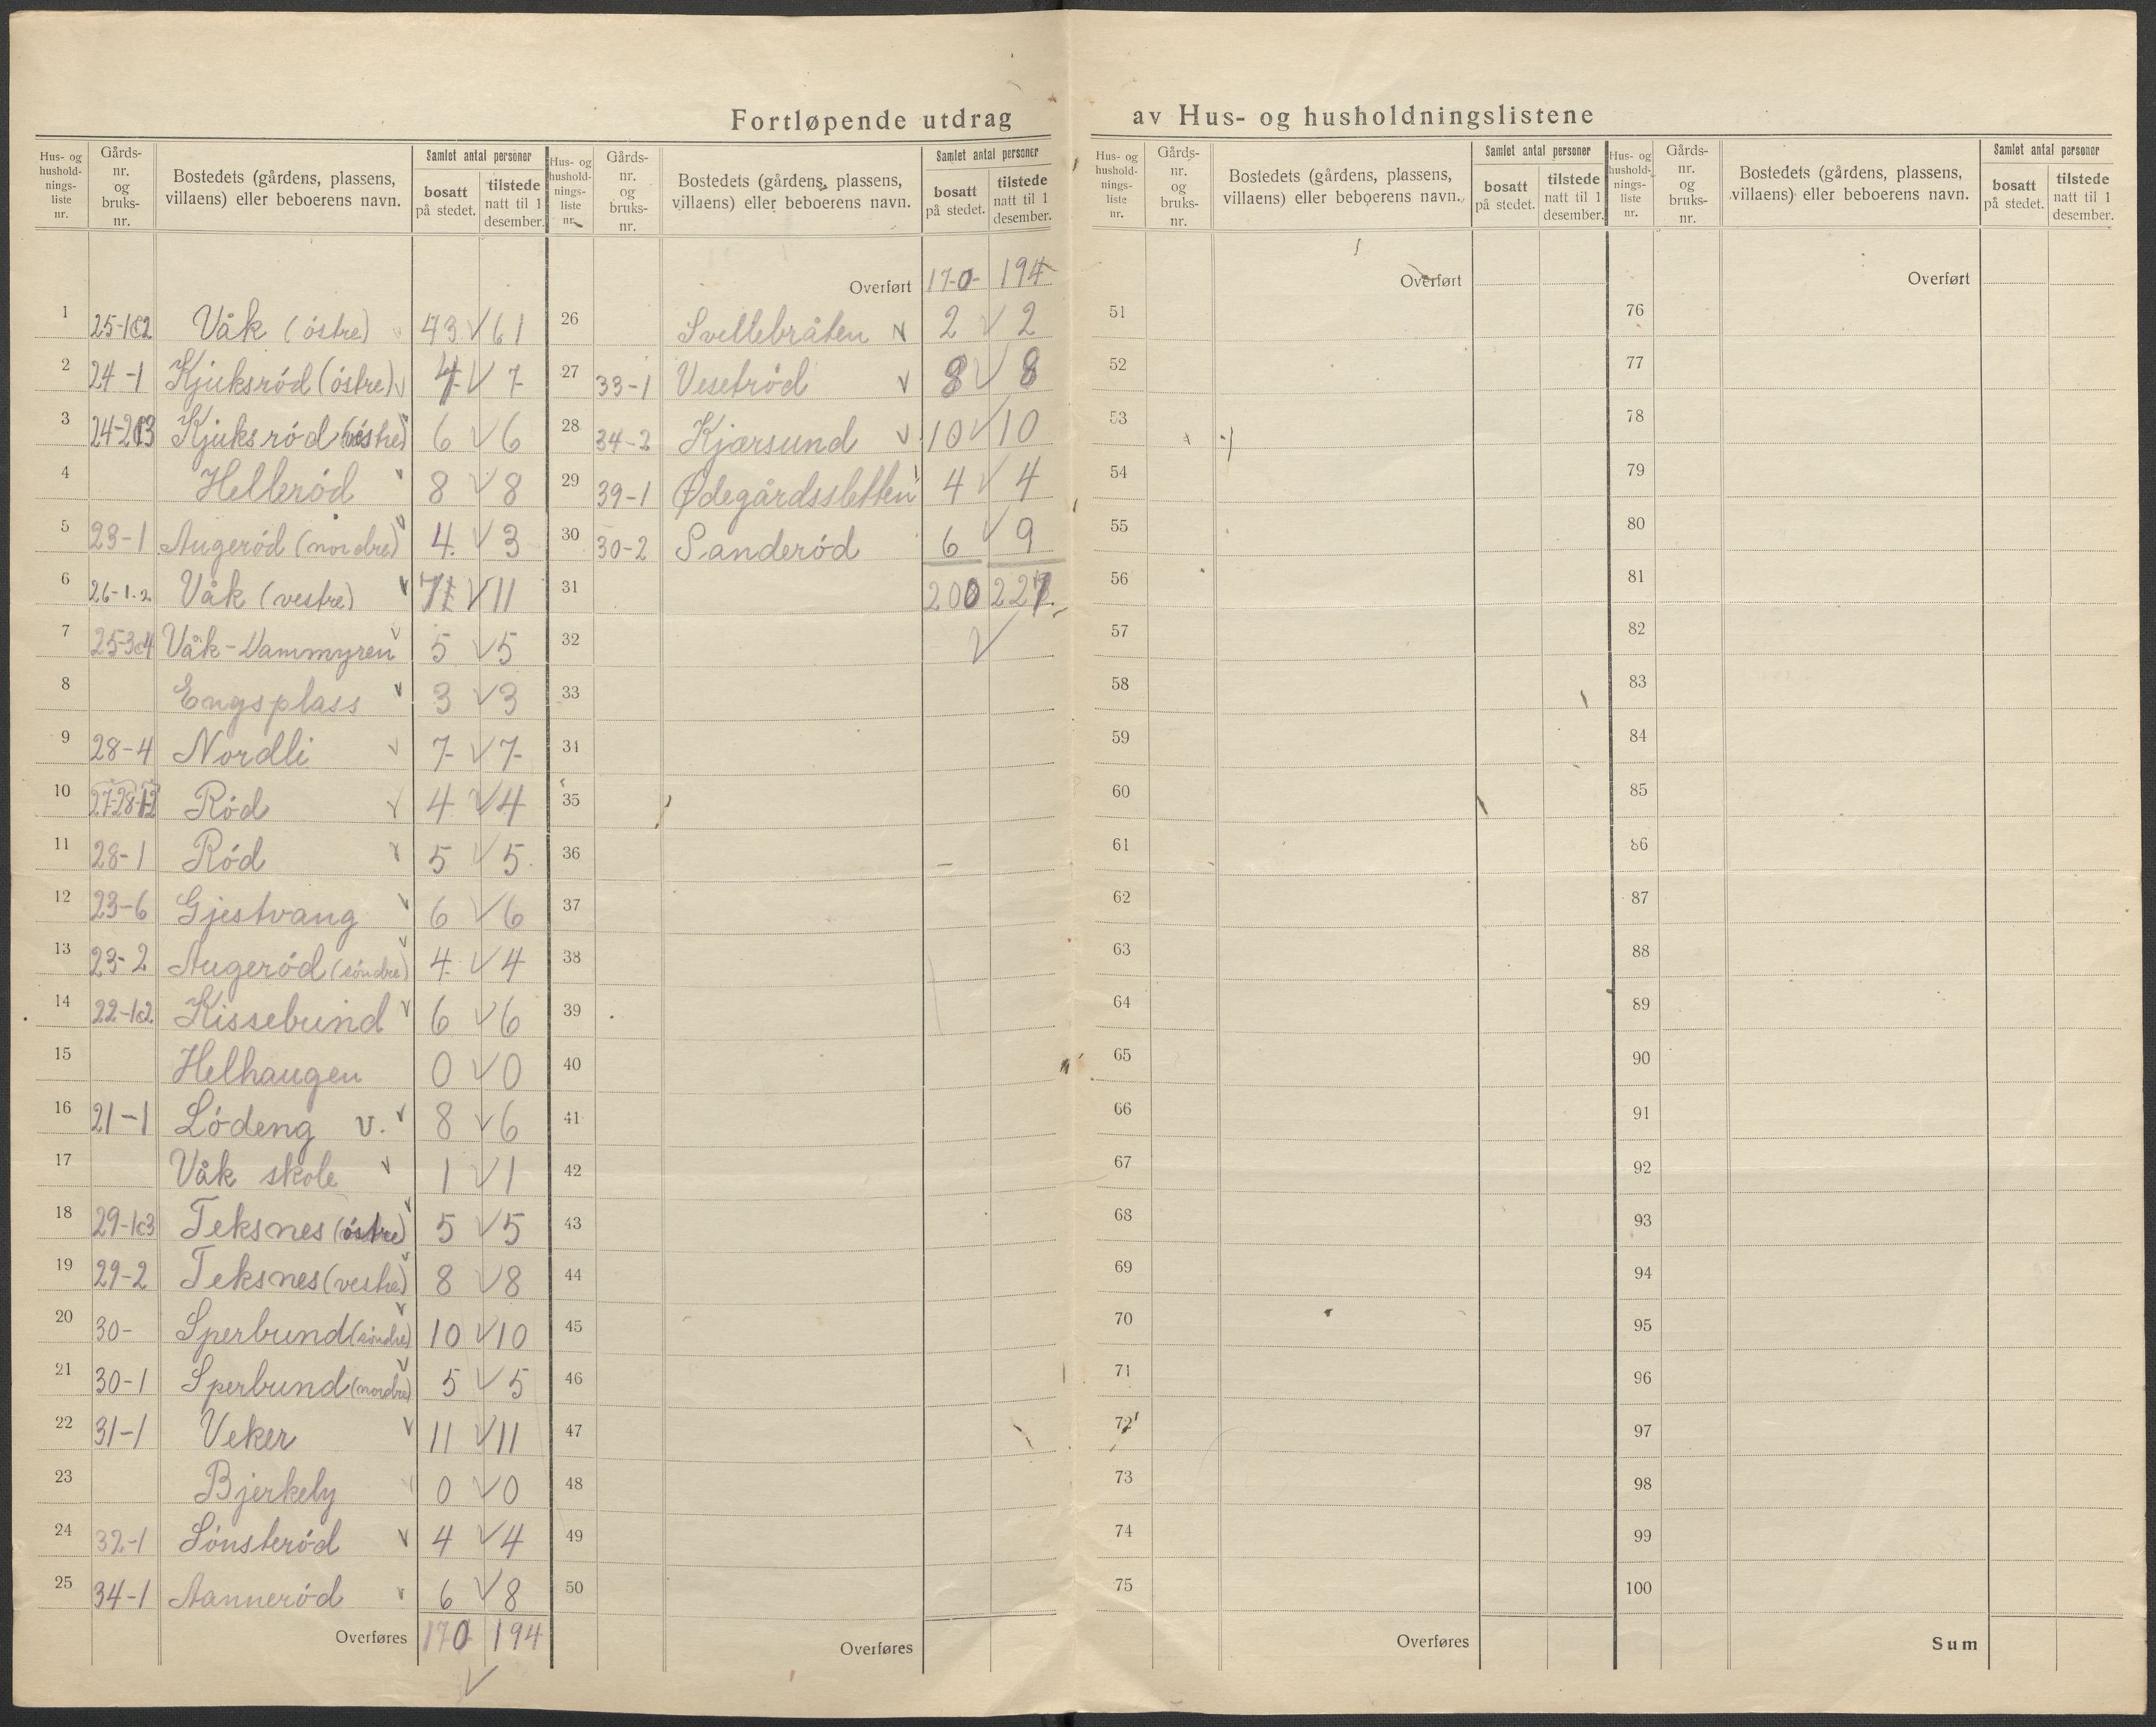 Fortløpende utdrag av Hus- og husholdningslistene
Hus- og hushold-nings-liste nr. Gårds-nr. og bruks-nr. Bostedets (gårdens, plassens, villaens) eller beboerens navn. Samlet antal personer bosatt på stedet. tilstede natt til 1 desember.
1 25-1&2 Våk (østre) 43 61
2 24-1 Kjuksród (óstre) 7
3 Kjuksród 6 6
4 Helleród 8 8
5 23-1 Augeród (nordre) 4 3
6 26-1.2 Våk (vestre) 11
7 25-3&4 Våk-Dammyren 5 5
8 Engsplass 3 3
9 28-4 Nordli 7 7
10 Ród 4 4
11 28-1 Ród 5 5
12 23-6 Gjestvang 6 6
13 23-2 Augeród (söndre) 4 4
14 22-1&2 Kissebund 6 6
15 Helhaugen 0 0
16 21-1 Lódeng v. 8 6
17 Våk skole 1 1
18 29-1&3 Teksnes (óstre) 5 5
19 29-2 Teksnes (vestre) 8 8
20 30- Sperbund (söndre) 10 10
21 30-1 Sperbund (nordre) 5 5
22 31-1 Veker 11 11
23 Bjerkely 0 0
24 32-1 Sónsteród 4 4
25 34-1 Aanneród 6 8
Overføres 170 194
Hus- og hushold-nings-liste nr. Gårds-nr. og bruks-nr. Bostedets (gårdens, plassens, villaens) eller beboerens navn. Samlet antal personer bosatt på stedet. tilstede natt til 1 desember.
Overført 170 194
26 Svellebråten 2 2
27 33-1 Vesetród 8 8
28 34-2 Kjærsund 10 10
29 39-1 Ødegårdssletten 4 4
30 30-2 Sanderód 6 9
31 200 227
32
33
34
35
36
37
38
39
40
41
42
43
44
45
46
47
48
49
50
Overføres
Hus- og hushold-nings-liste nr. Gårds-nr. og bruks-nr. Bostedets (gårdens, plassens, villaens) eller beboerens navn. Samlet antal personer bosatt på stedet. tilstede natt til 1 desember.
Overført
51
52
53
54
55
56
57
58
59
60
61
62
63
64
65
66
67
68
69
70
71
72
73
74
75
Overføres
Hus- og hushold-nings-liste nr. Gårds-nr. og bruks-nr. Bostedets (gårdens, plassens, villaens) eller beboerens navn. Samlet antal personer bosatt på stedet. tilstede natt til 1 desember.
Overført
76
77
78
79
80
81
82
83
84
85
86
87
88
89
90
91
92
93
94
95
96
97
98
99
100
Sum